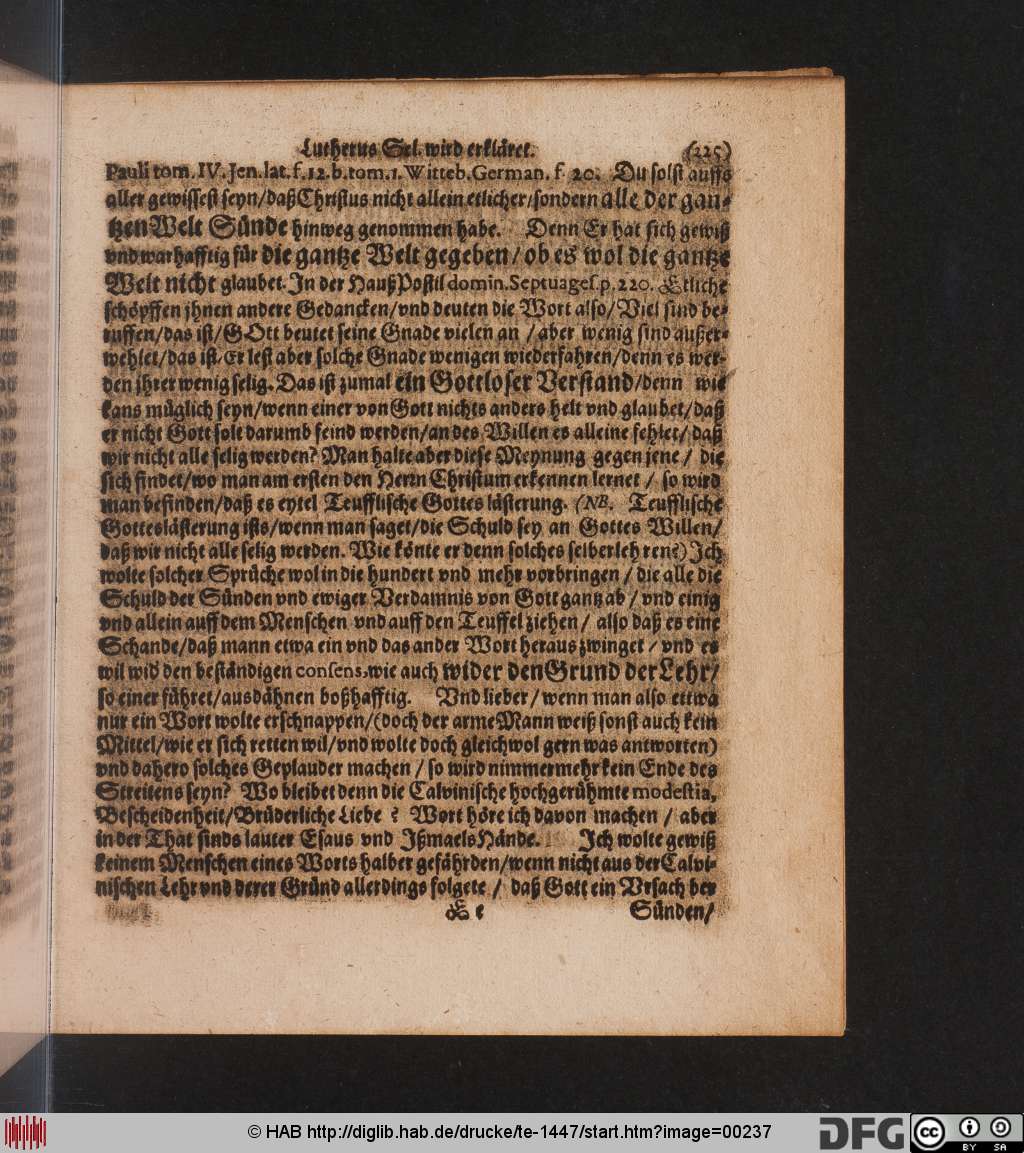 Lutherus Sel. wird erkläret. (225)
Pauli tom. IV. Jen. lat. f. 12. b. tom. 1. Witteb. German. f. 20. Du solst auffs
aller gewissest seyn/daß Christus nicht allein etlicher/sondern alle der gan-
tzen Welt Sünde hinweg genommen habe. Denn Er hat sich gewiß
vnd warhafftig für die gantze Welt gegeben/ ob es wol die gantze
Welt nicht glaubet. In der Hauß Postil domin. Septuages. p. 220. Etliche
schöpffen jhnen andere Gedancken/vnd deuten die Wort also/Viel sind be-
ruffen/das ist/GOtt beutet seine Gnade vielen an /aber wenig sind außer-
wehlet/das ist/Er lest aber solche Gnade wenigen wiederfahren/denn es wer-
den jhrer wenig selig. Das ist zumal ein Gottloser Verstand/denn wie
kans müglich seyn/wenn einer von Gott nichts anders helt vnd glaubet/daß
er nicht Gott solt darumb feind werden/an des Willen es alleine fehlet/ daß
wir nicht alle selig werden? Man halte aber diese Meynung gegen jene / die
sich findet/wo man am ersten den Herrn Christum erkennen lernet / so wird
man befinden/daß es eytel Teufflische Gottes lästerung. (NB. Teufflische
Gotteslästerung ists/wenn man saget/die Schuld sey an Gottes Willen/
daß wir nicht alle selig werden. Wie könte er denn solches selber lehren?) Ich
wolte solcher Sprüche wol in die hundert vnd mehr vorbringen / die alle die
Schuld der Sünden vnd ewiger Verdamnis von Gott gantz ab / vnd einig
vnd allein auff dem Menschen vnd auff den Teuffel ziehen / also daß es eine
Schande/daß mann etwa ein vnd das ander Wort heraus zwinget / vnd es
wil wid den beständigen consens, wie auch wider den Grund der Lehr/
so einer führet/ausdähnen boßhafftig. Vnd lieber / wenn man also ettwa
nur ein Wort wolte erschnappen/(doch der arme Mann weiß sonst auch kein
Mittel/wie er sich retten wil/vnd wolte doch gleichwol gern was antworten)
vnd dahero solches Geplauder machen / so wird nimmermehr kein Ende des
Streitens seyn? Wo bleibet denn die Calvinische hochgerühmte modestia,
Bescheidenheit/Brüderliche Liebe ? Wort höre ich davon machen / aber
in der That sinds lauter Esaus vnd Ißmaels Hände. Ich wolte gewiß
keinem Menschen eines Worts halber gefährden/wenn nicht aus der Calvi-
nischen Lehr vnd derer Gründ allerdings folgete / daß Gott ein Vrsach der
E e Sünden/
© HAB http://diglib.hab.de/drucke/te-1447/start.htm?image=00237
DFG cc BY SA